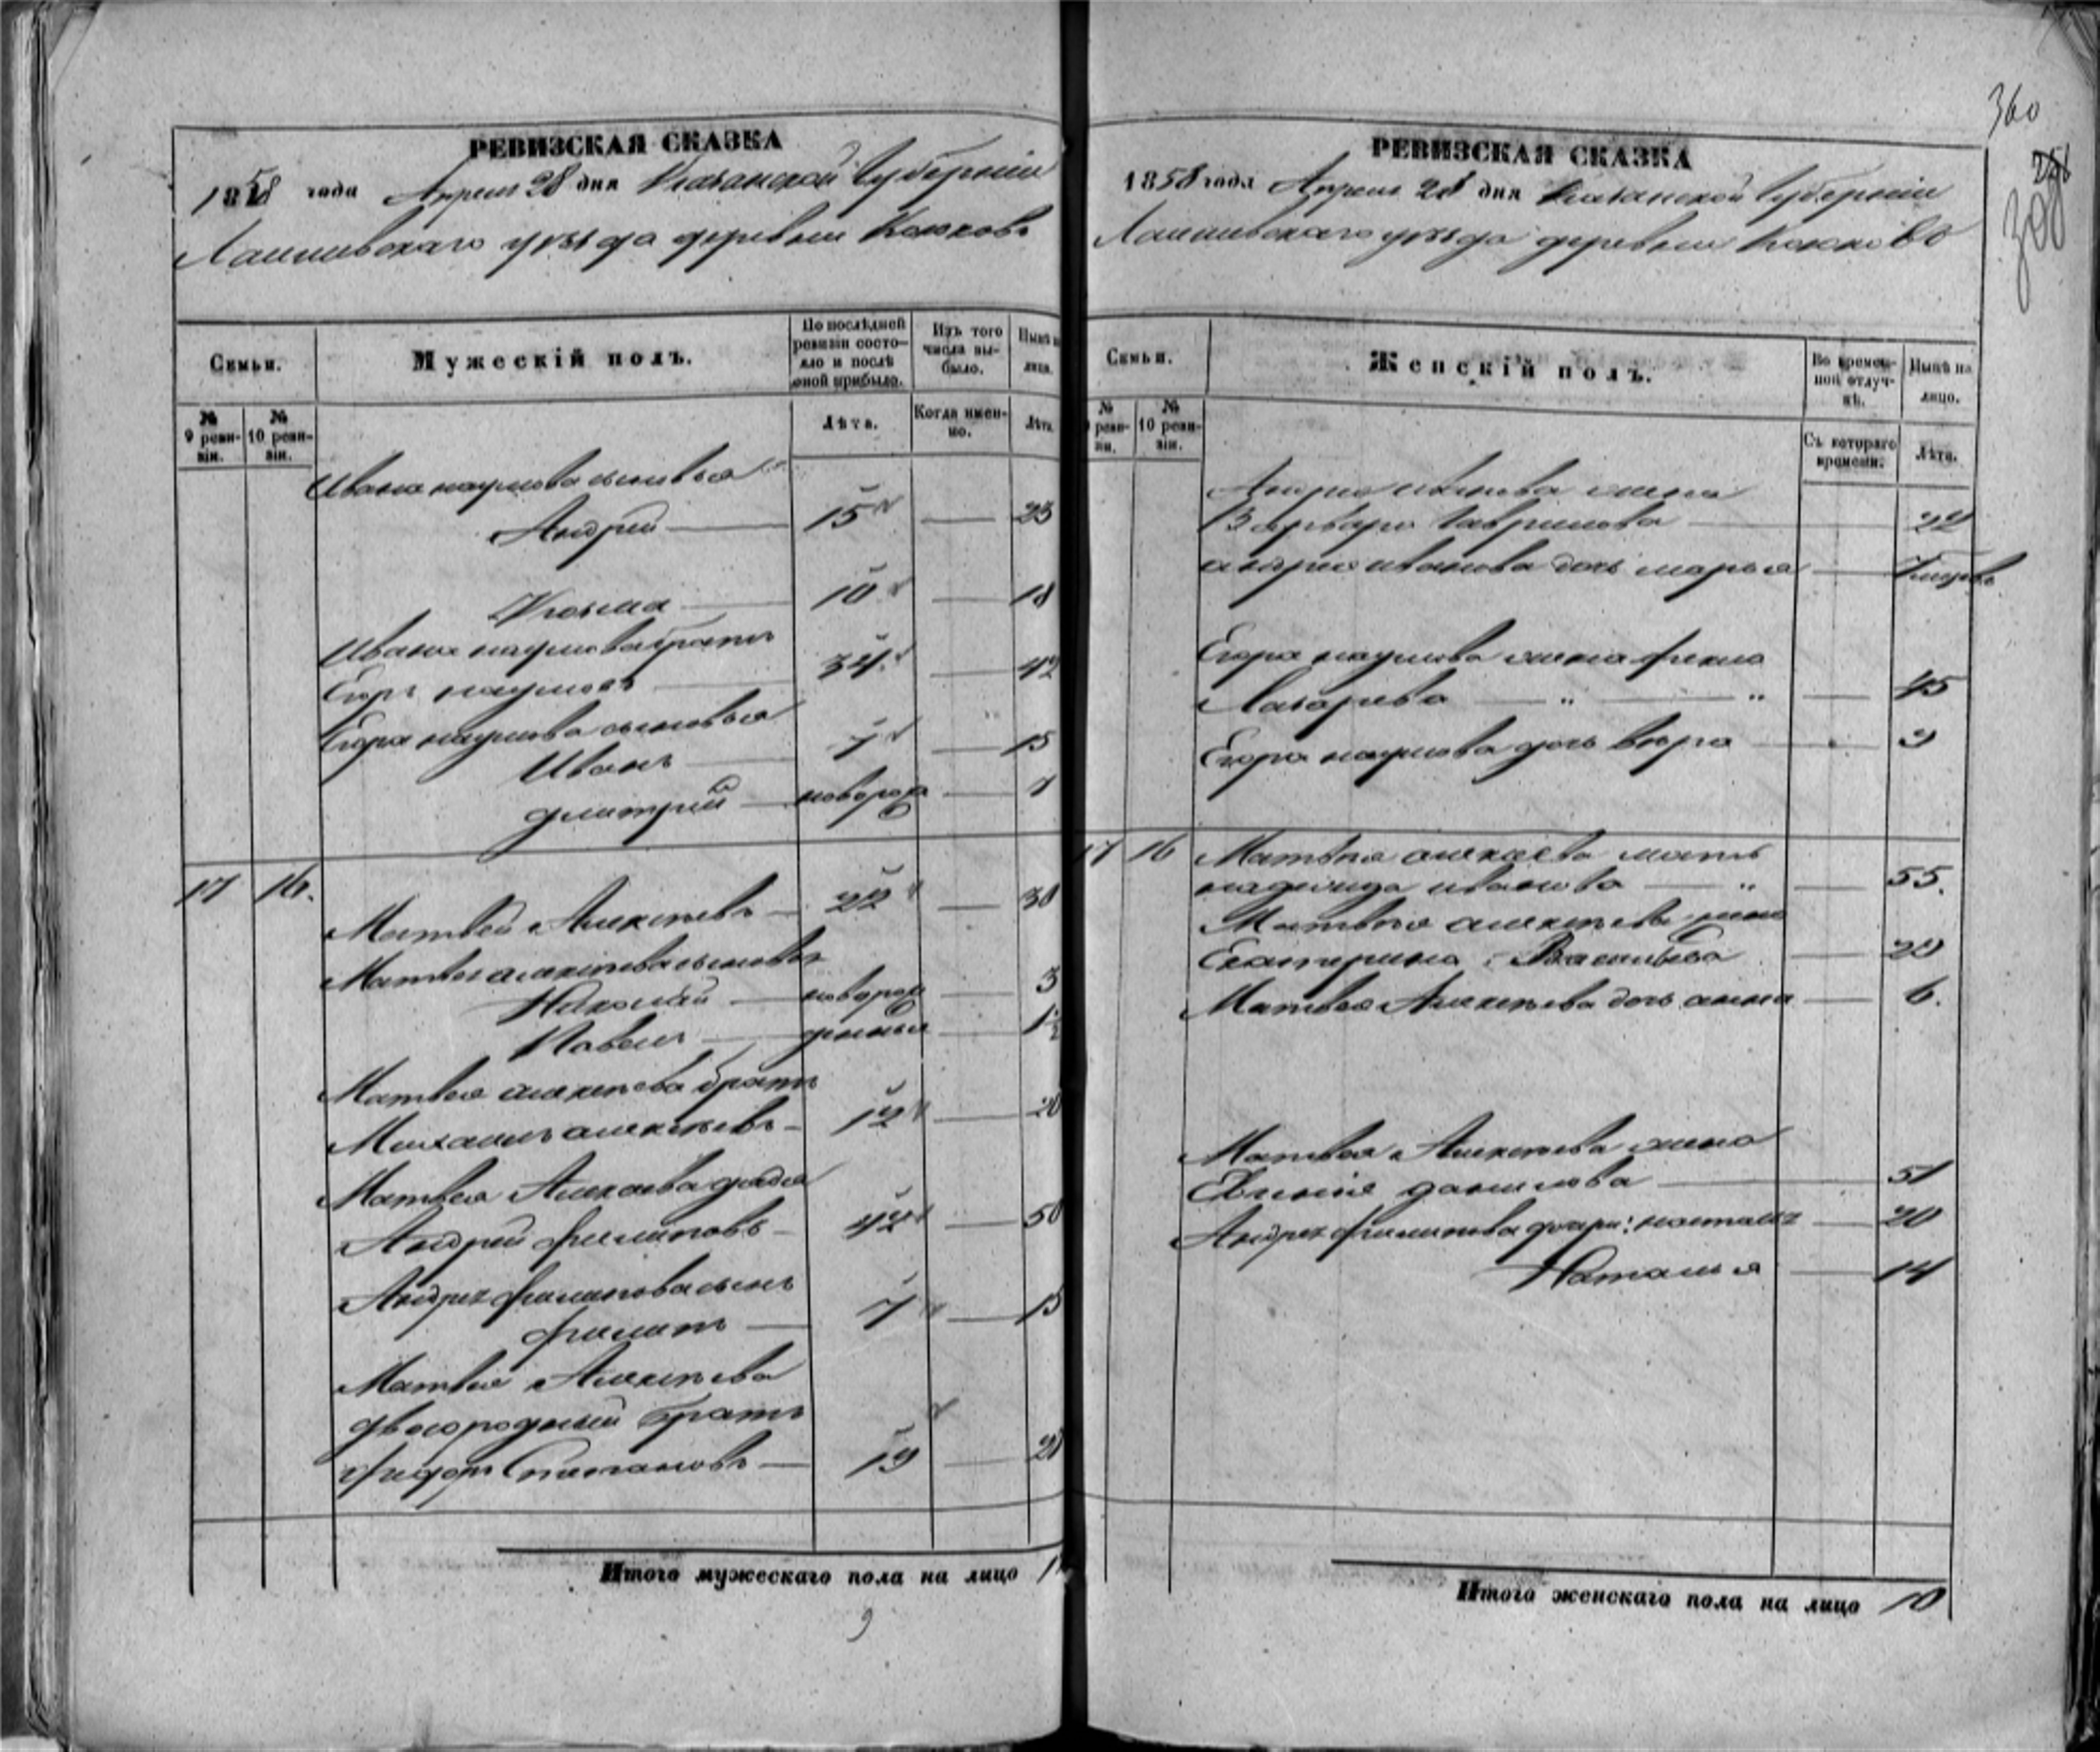 РЕВИЗСКАЯ СКАЗКА
1858 года Апреля 28 дня Казанской Губернии
Лаишевскаго уезда деревни Каюково
Семьи.
Мужескій полъ.
По послѣдней ревизіи состояло и послѣ оной прибыло.
Изъ того числа выбыло.
Нынѣ на лицо.
№ 9 ревизіи.
№ 10 ревизіи.
Лѣта.
Когда именно.
Лѣта.
Ивана наумова сыновья
Андрей 15 — 23
Козьма 10 — 18
Ивана наумова братъ
Егоръ наумовъ 34 — 42
Егора наумова сыновья
Иванъ 7 — 15
дмитрий — новорож — 7
17 16.
Матвей Алексеевъ — 22 — 30
Матвея алексеева сыновья
Николай — новорож — 3
Павелъ — денные — 1½
Матвея алексеева братъ
Михаилъ алексеевъ — 12 — 20
Матвея Алексеева дядя
Андрей филиповъ — 42 — 50
Андрея филипова сынъ
филипъ — 7 — 15
Матвея Алексеева
двоюродный братъ
Федоръ Степановъ — 19 — 28
Итого мужескаго пола на лицо
9
360
308
РЕВИЗСКАЯ СКАЗКА
1858 года Апреля 28 дня Казанской Губернии
Лаишевскаго уезда деревни Каюково
Семьи.
Женскій полъ.
Во временной отлучкѣ.
Нынѣ на лицо.
№ 9 ревизіи.
№ 10 ревизіи.
Съ котораго времени.
Лѣта.
Андрея иванова жена
Варвара Гаврилова 22
андрея иванова дочь марья —
Егора наумова жена фекла
Лазарева — " — " — 45
Егора наумова дочь вера 9
17 16 Матвея алексеева мать
надежида иванова — " — 55.
Матвея алексеева жена
Екатерина Васильева — 29
Матвея Алексеева дочь анна — 6.
Матвея Алексеева жена
данилова 51
Андрея филипова дочери: настасья — 20
Наталья — 14
Итого женскаго пола на лицо 10